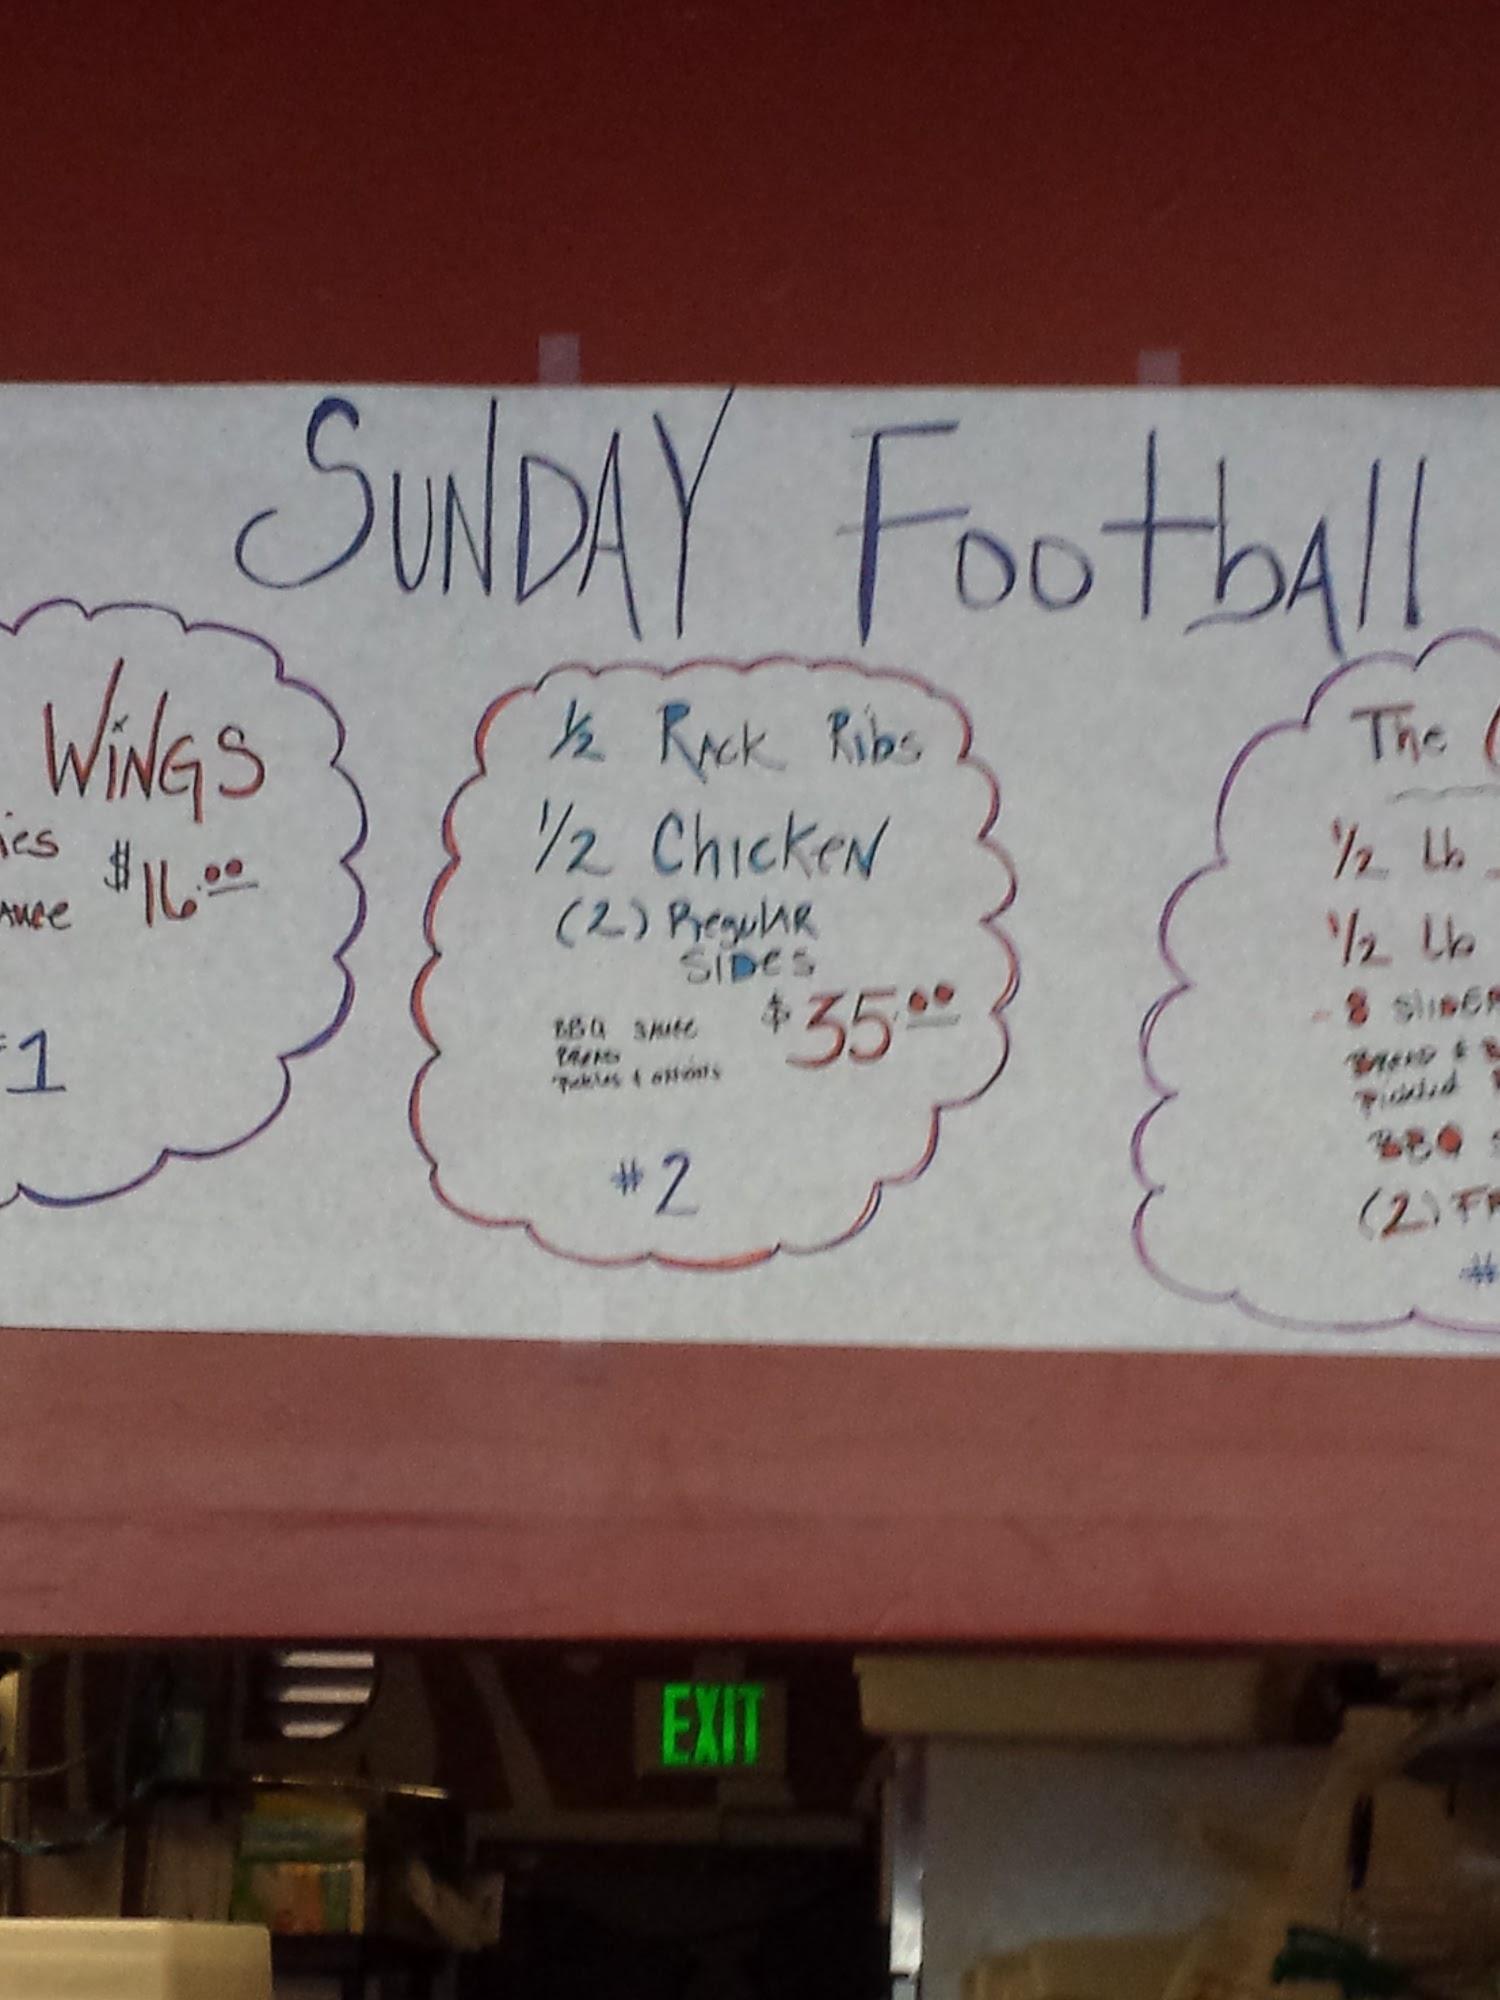 SUNDAY FootbAll
WiNGS
ies
$16.00
Auce
#1
1/2 RAck Ribs
1/2 ChickeN
(2) ReguLAR
SIDES
BBQ SAUCE
$35.00
BREAD
Pickles & onions
#2
The
1/2 Lb
1/2 Lb
- 8 SLIDER
BREAD &
Pickled
BBQ
(2) FR
#
EXIT